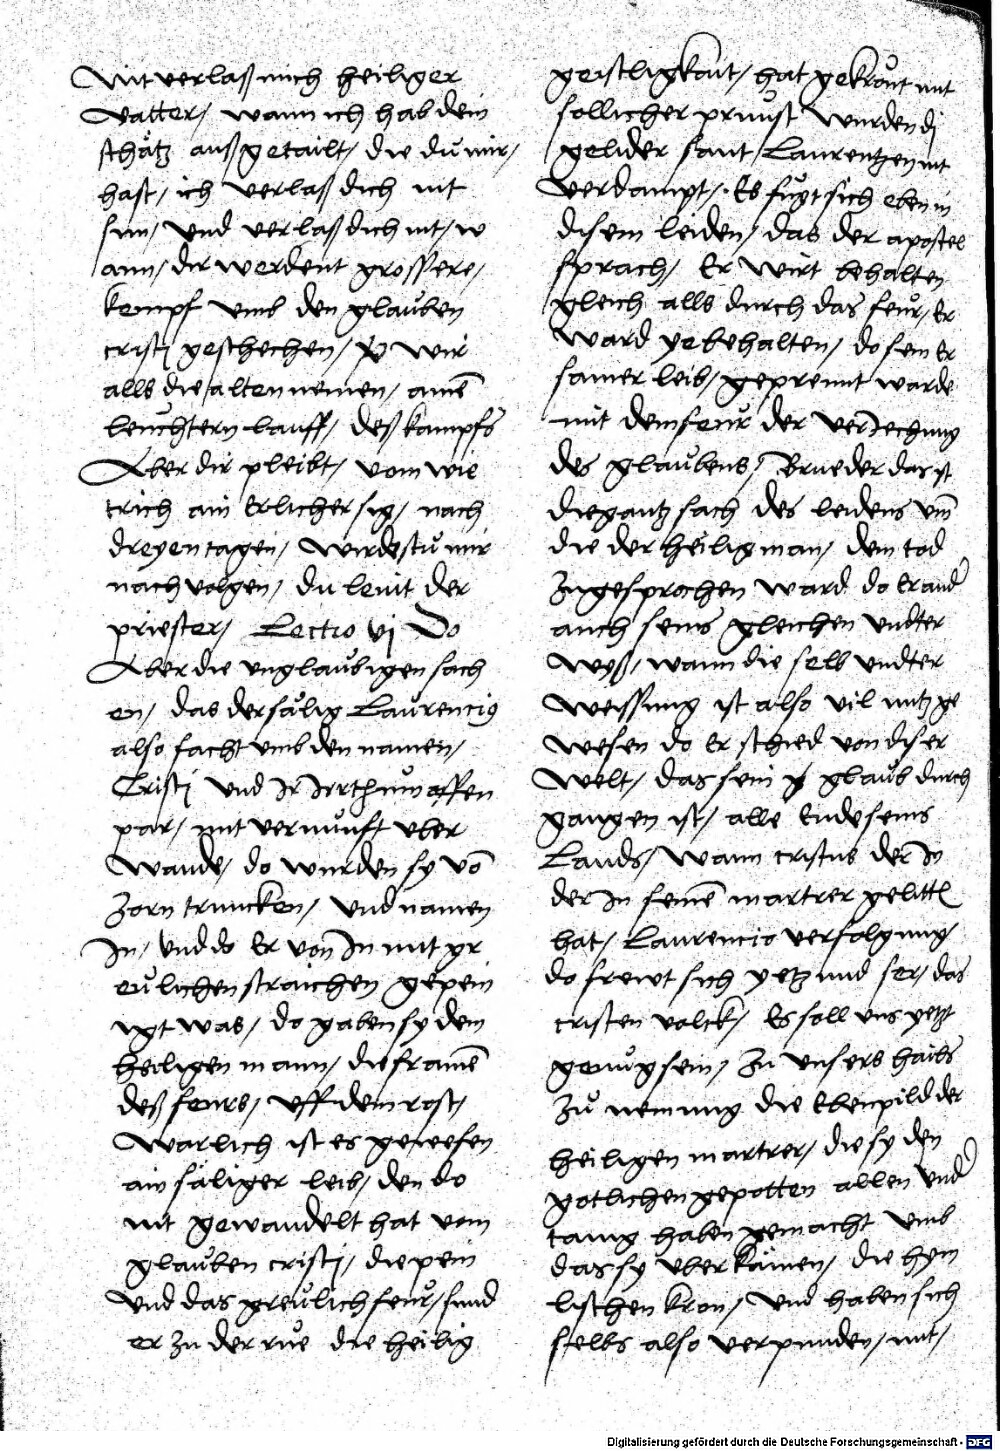 Nit verlaß mich heiliger
vatter / wann ich hab dein
schätz außgetailt / die du mir /
hast / ich verlaß dich nit
sun / und verlaß dich nit / w
ann / dir werdent grossere /
kempf umb den glauben
cristj geschechen / wir
alls die alten nemen / ainē
leuchtern lauff / deß kampfs
Aber dir pleibt / vom wie
trich ain erlicher sig / nach
dreyen tagen / wirdestu mir
nach volgen / du levit der
priester / Lectio vj Do
Aber die unglaubigen sach
en / das der sälig Laurencius
also facht umb den namen /
Cristj und Ir Irrthum offen
par / mit vernunft uber
wande / do wurden sy vō
zorn truncken / und namen
In / und do Er von In mit gr
eulichen straichen gepein
igt was / do gaben sy dem
heiligen mann / die
deß feurs / uff dem rost /
warlich ist es gewesen
ain säliger leib / den do
nit gewandelt hat vom
glauben cristj / die pein
und das greulich feur / sund
er zu der rue die heilig
geistligkait / hat gekrönt mit
sollicher prunst wurden dj
gelider sant Laurentzen nit
verdampt / Es fügt sich eben in
disem leiden / das der apostel
sprach / Er wirt behalten
gleich alls durch das feur / Er
ward yebehalten / do sein Er
samer leib / geprennt warde
mit dem feur der verjechung
des glaubens / Brueder das ist
die gantz sach des leidens um̄
die der heilig man / dem tod
zugesprochen ward do Er and
auch seins gleichen undter
wyß / wann die selb undter
weissung ist also vil nutz ge
wesen do Er schied von diser
welt / das sein glaub durch
gangen ist / alle Ende seins
Lands / wann cristus der In
der In seinē martrer gelittē
hat / Laurencio verfolgung /
do frewt sich yetz und ser / das
cristen volck / Es soll uns yetzt
genug sein / zu unsers hails
zu nemung die Ebenpild der
heiligen martrer / die sy den
gotlichen gepotten allen und
tanig haben gemacht umb
das sy uberkämen / die hym
lischen kron / und haben sich
selbs also verpunden / mit /
Digitalisierung gefördert durch die Deutsche Forschungsgemeinschaft - DFG